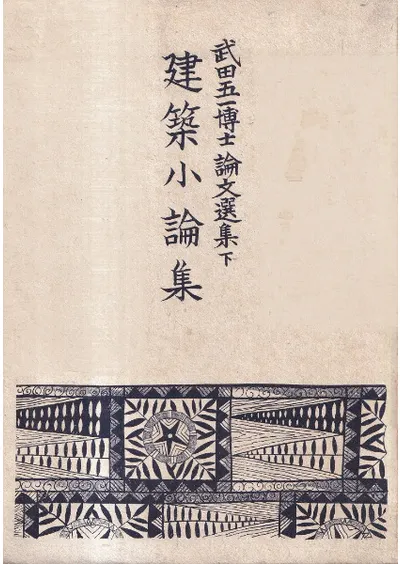 武田五一博士 論文選集 下
建築小論集